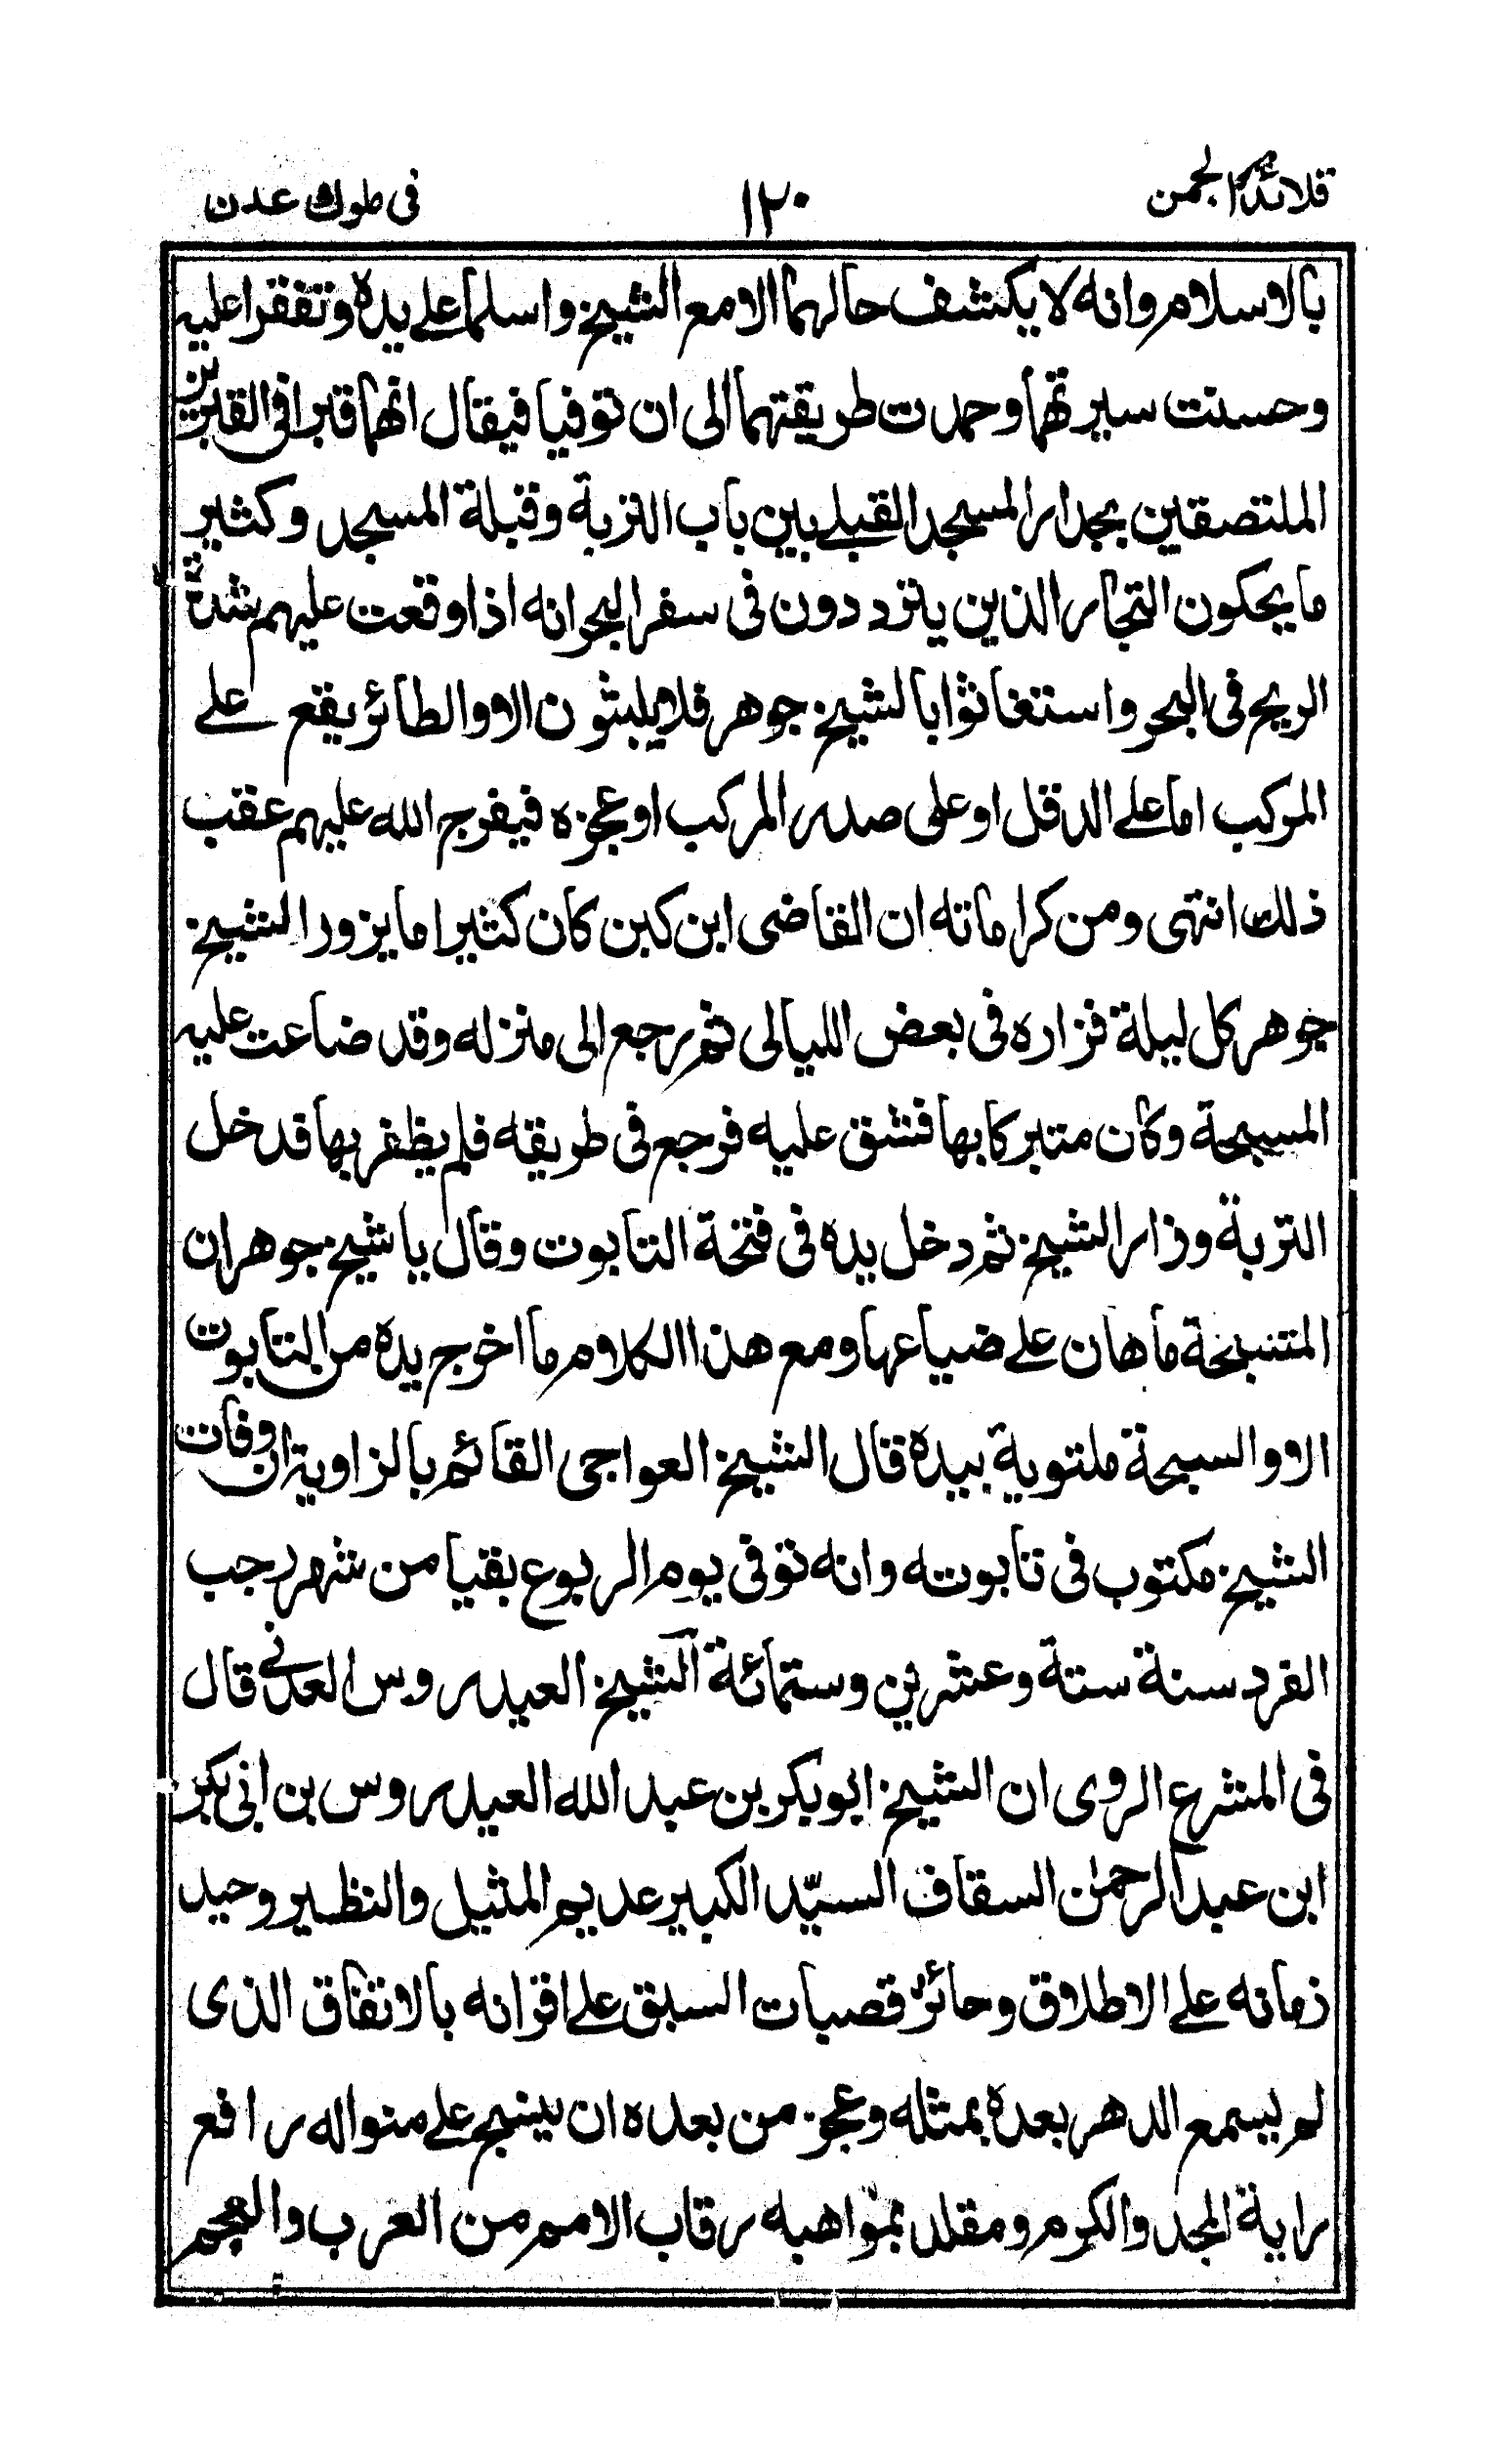 قلائد الجمن
١٢٠
فى ملوك عدن
بالاسلام وانه لا يكشف حالهما الا مع الشيخ واسلما على يده وتفقرا عليه
وحسنت سيرتهما وحمدت طريقتهما الى ان توفيا فيقال انهما قبرا فى القبرين
الملتصقين بجدار المسجد القبلے بين باب التربة وقبلة المسجد وكثير
ما يحكون التجار الذين يترددون فى سفر البحر انه اذا وقعت عليهم شدة
الريح فى البحر واستغاثوا بالشيخ جوهر فلا يلبثون الا والطائر يقع علے
المركب اما علے الدقل او على صدر المركب او عجزه فيفرج الله عليهم عقب
ذلك انتهى ومن كراماته ان القاضى ابن كبن كان كثيرا ما يزور الشيخ
جوهر كل ليلة فزاره فى بعض الليالى ثم رجع الى منزله وقد ضاعت عليه
المسبحة وكان متبركا بها فشق عليه فرجع فى طريقه فلم يظفر بها قدخل
التربة وزار الشيخ ثم دخل يده فى فتخة التابوت وقال يا شيخ جوهر ان
المتسبخة ما هان علے ضياعها ومع هذا الكلام ما اخرج يده من التابوت
الا والسبحة ملتوية بيده قال الشيخ العواجى القائم بالزاوية ان وفات
الشيخ مكتوب فى تابوته وانه توفى يوم الربوع بقيا من شهر رجب
الفرد سنة ستة وعشرين وستمائة الشيخ العيدروس العدنے قال
فى المشرع الروى ان الشيخ ابو بكر بن عبد الله العيدروس بن ابى بكر
ابن عبد الرحمٰن السقاف السيّد الكبير عديم المثيل والنظير وحيد
زمانه علے الاطلاق وحائز قصبات السبق علے اقرانه بالاتفاق الذى
لم يسمع الدهر بعده بمثله وعجز من بعده ان ينسج علے منواله رافع
راية المجد والكرم ومقلد بمواهبه رقاب الامم من العرب والعجم